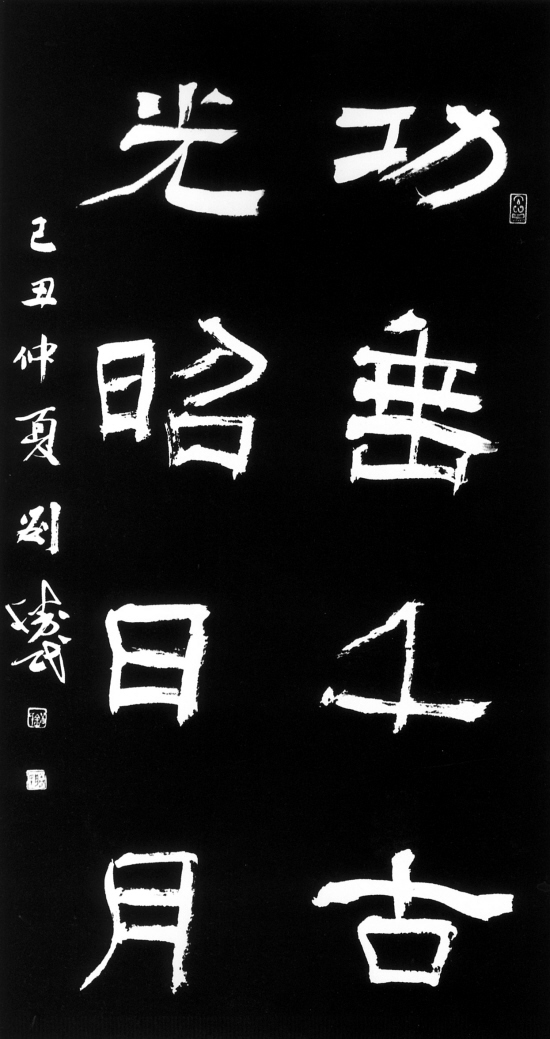 功垂千古
光昭日月
己丑仲夏劉勝武